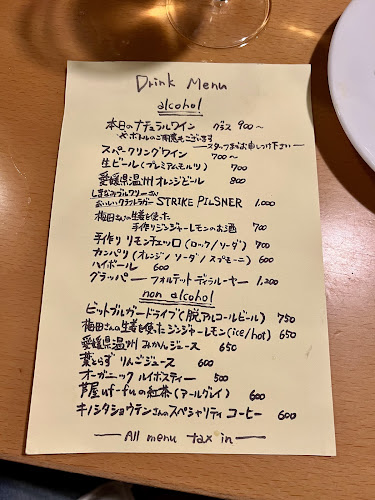 Drink Menu
alcohol
本日のナチュラルワイン グラス 900〜
やボトルのご用意もございます
—スタッフまでお申しつけ下さい—
スパークリングワイン 700〜
生ビール(プレミアムモルツ) 700
愛媛県温州オレンジビール 800
しまなみブルワリーさん
おいしいクラフトラガー STRIKE PILSNER 1,000
梅田さんの生姜を使った
手作りジンジャーレモンのお酒 700
手作りリモンチェッロ(ロック/ソーダ) 700
カンパリ(オレンジ/ソーダ/スプモーニ) 600
ハイボール 600
グラッパー フォルテットディラルーヤー 1,200
non alcohol
ビットブルガードライブ(脱アルコールビール) 750
梅田さんの生姜を使ったジンジャーレモン(ice/hot) 650
愛媛県温州みかんジュース 650
葉とらずりんごジュース 600
オーガニックルイボスティー 500
芦屋uf-fuの紅茶(アールグレイ) 600
キノシタショウテンさんのスペシャリティコーヒー 600
—All menu tax in—